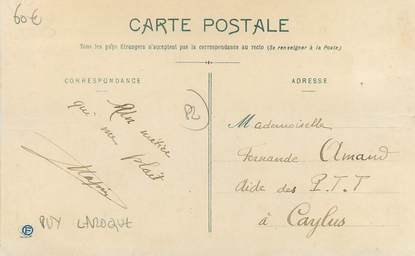 60€
CARTE POSTALE
Tous les pays étrangers n'acceptent pas la correspondance au recto (Se renseigner à la Poste)
CORRESPONDANCE
ADRESSE
Un métier
qui me plait
82
Mademoiselle
Fernande Amand
Aide des P.T.T
à Caylus
PUY LAROQUE